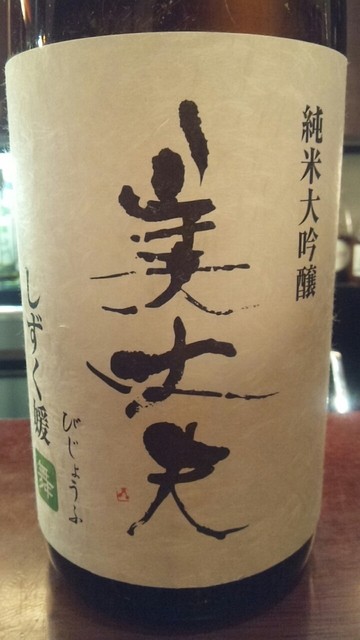 純米大吟醸
美丈夫
びじょうふ
しずく媛
舞